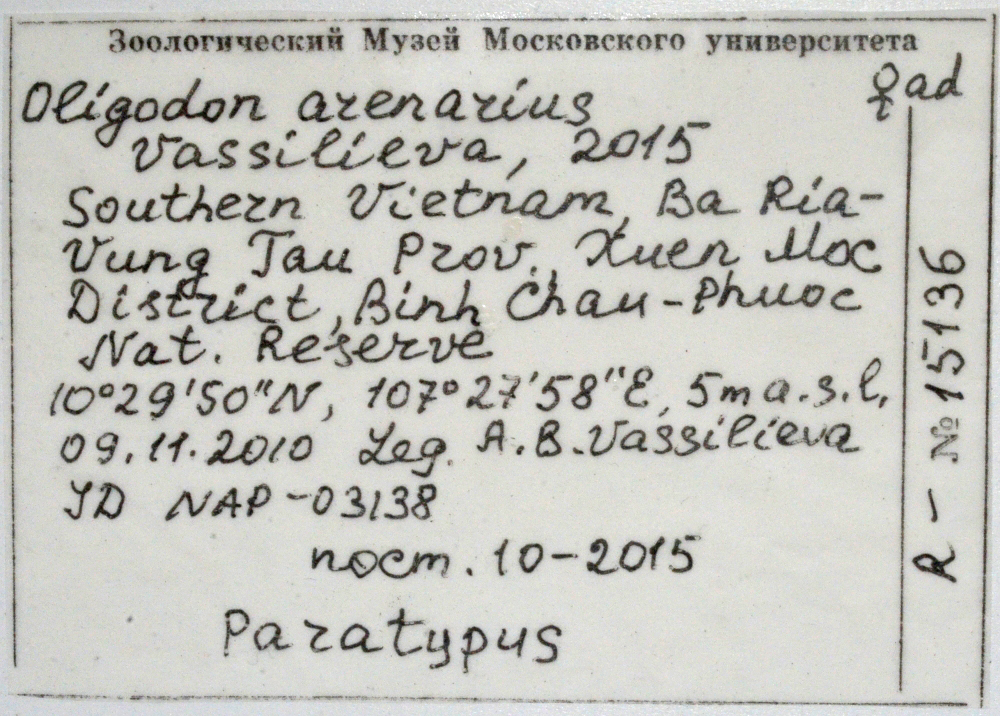 Зоологический Музей Московского университета
Oligodon arenarius ♀ ad
Vassilieva, 2015
Southern Vietnam, Ba Ria-
Vung Tau Prov., Xuen Moc
District, Binh Chau-Phuoc
Nat. Reserve
10°29'50"N, 107°27'58"E, 5m a.s.l.
09.11.2010 Leg. A.B.Vassilieva
ID NAP-03138
пост. 10-2015
Paratypus
R - № 15136